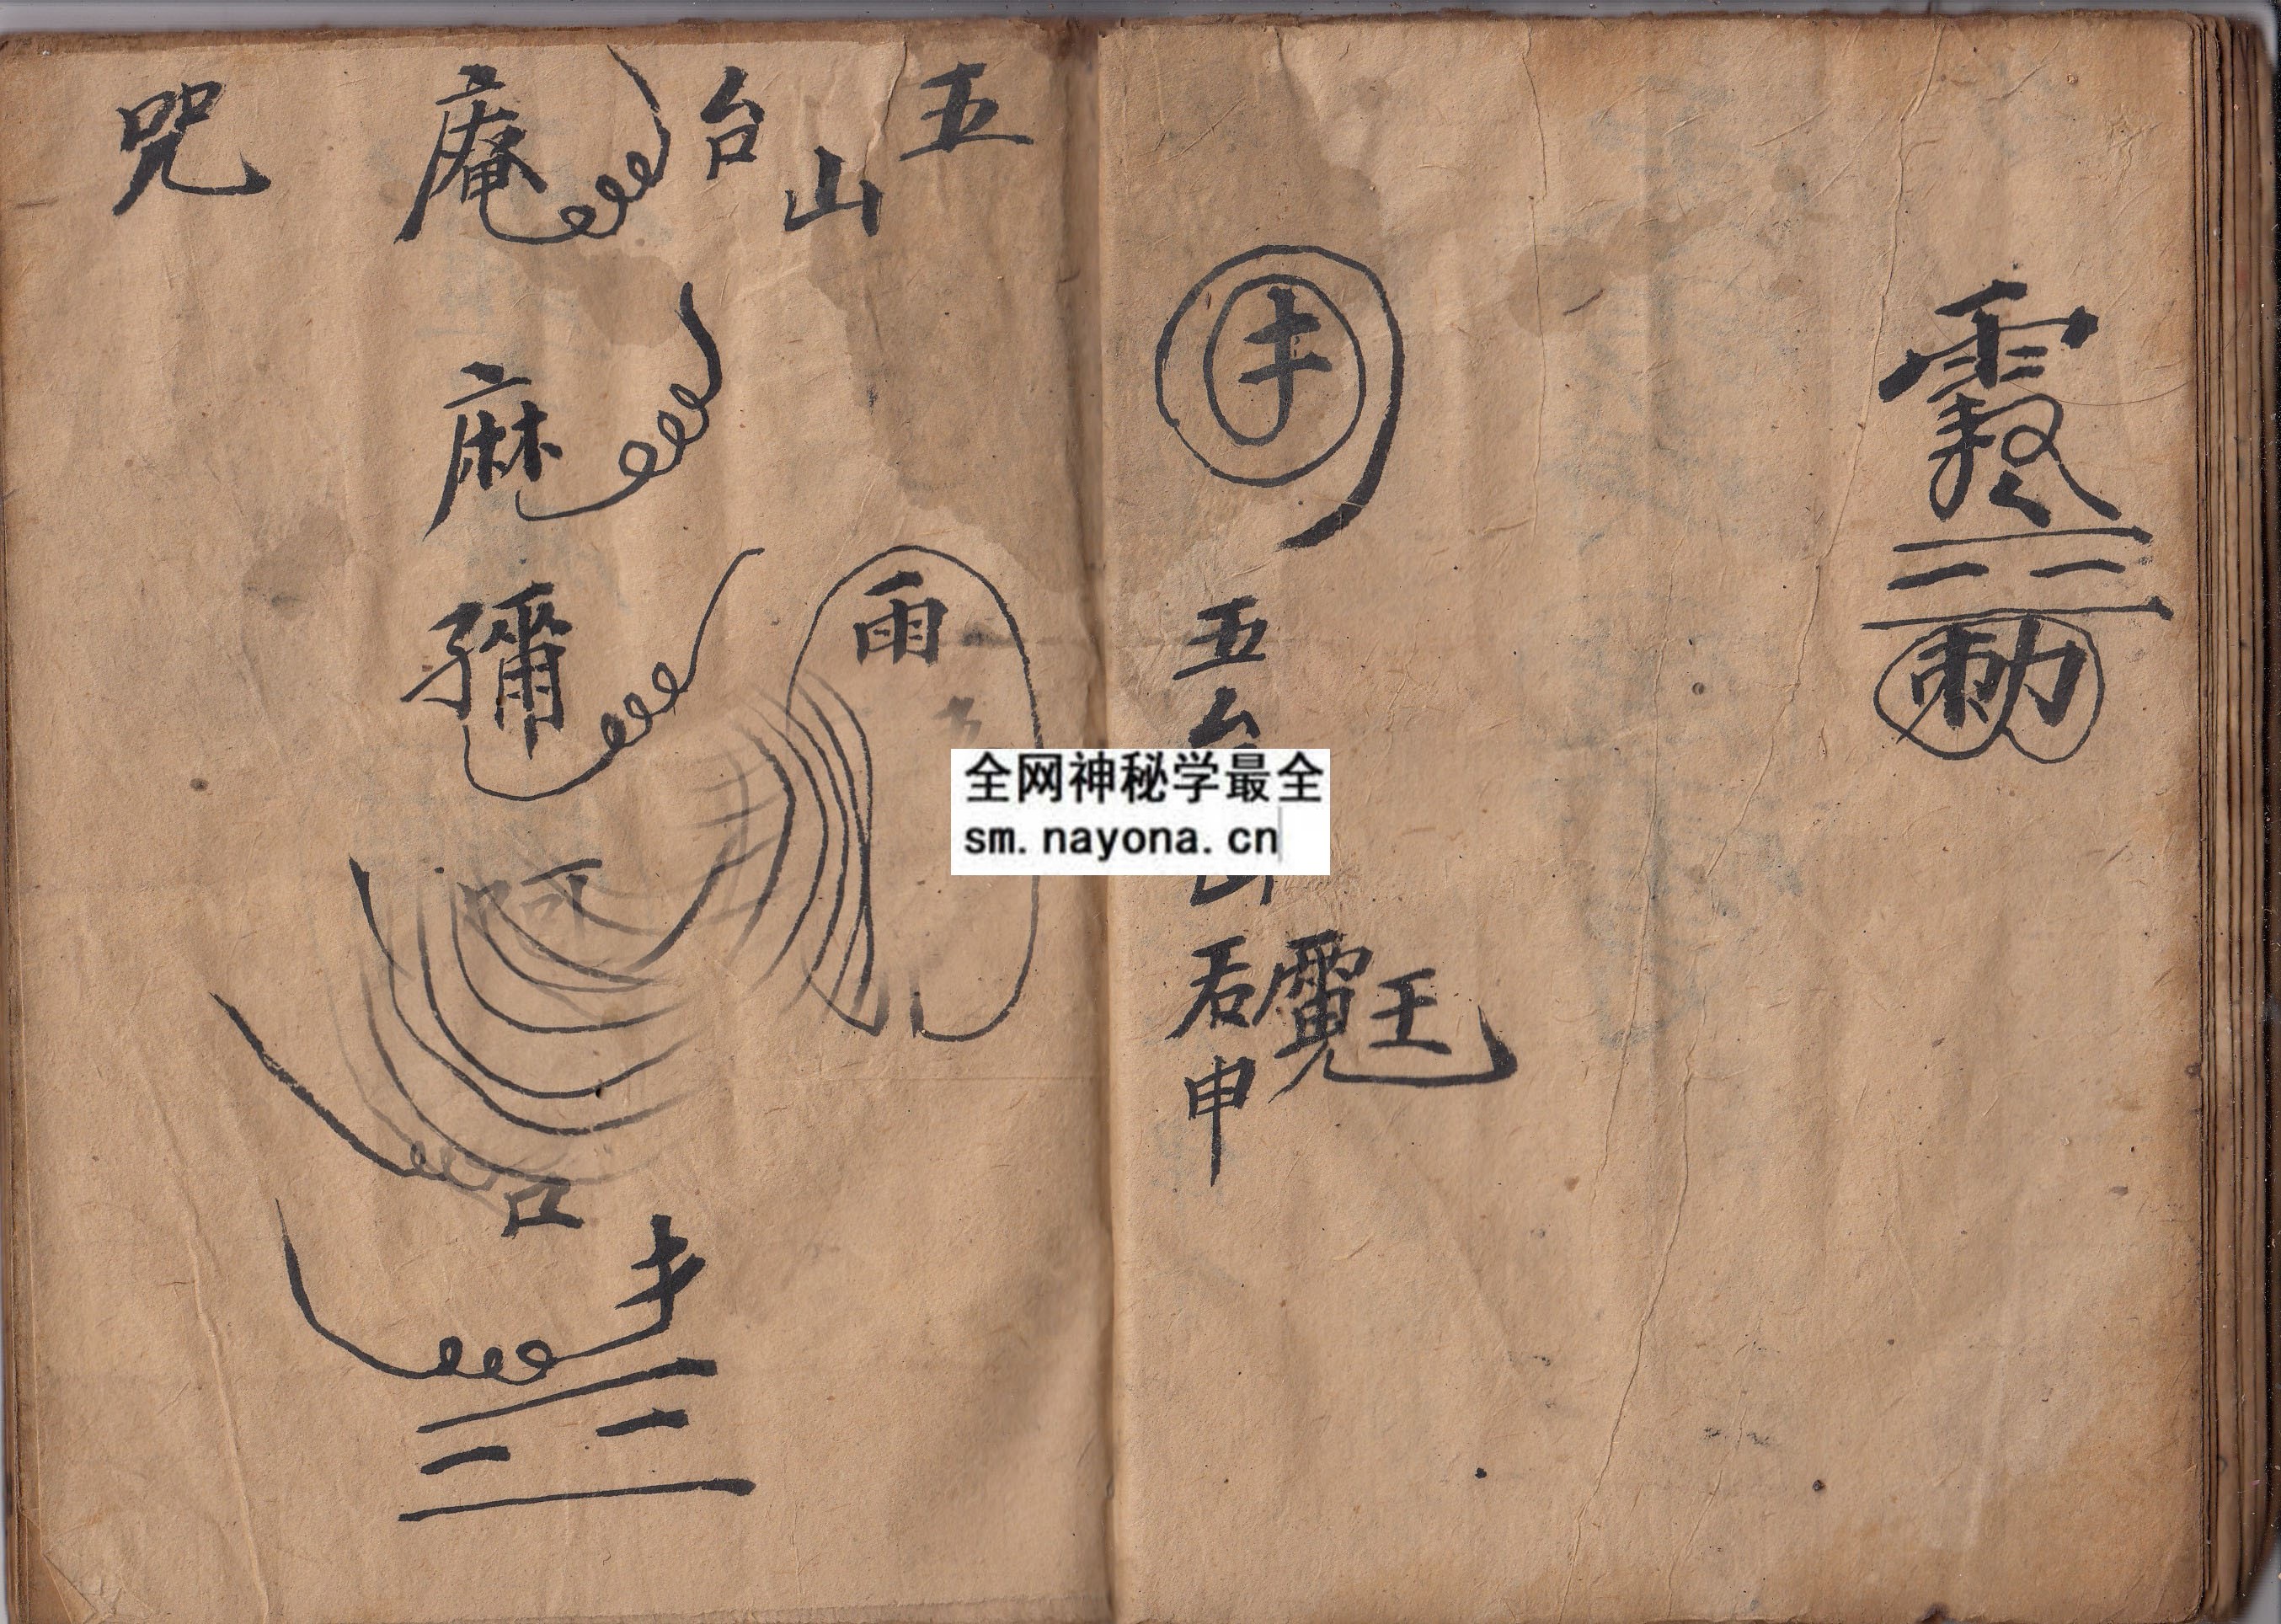 勅
手
五
台
山
右
申
王
五
山
台
雨
庵
麻
彌
呵
口
咒
全网神秘学最全
sm.nayona.cn